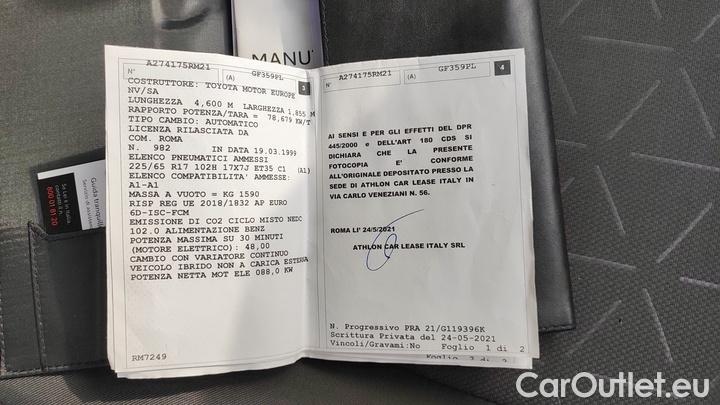 MANU
Guida tranquill
Servizio di Assistenza
Se Lei è in Italia
contatti il n.
800 01 81 20
A274175RM21
N°
(A)
GF359PL
3
COSTRUTTORE: TOYOTA MOTOR EUROPE
NV/SA
LUNGHEZZA 4,600 M LARGHEZZA 1,855 M
RAPPORTO POTENZA/TARA = 78,679 KW/T
TIPO CAMBIO: AUTOMATICO
LICENZA RILASCIATA DA
COM. ROMA
N. 982 IN DATA 19.03.1999
ELENCO PNEUMATICI AMMESSI
225/65 R17 102H 17X7J ET35 C1 (A1)
ELENCO COMPATIBILITA' AMMESSE:
A1-A1
MASSA A VUOTO = KG 1590
RISP REG UE 2018/1832 AP EURO
6D-ISC-FCM
EMISSIONE DI CO2 CICLO MISTO NEDC
102.0 ALIMENTAZIONE BENZ
POTENZA MASSIMA SU 30 MINUTI
(MOTORE ELETTRICO): 48,00
CAMBIO CON VARIATORE CONTINUO
VEICOLO IBRIDO NON A CARICA ESTERNA
POTENZA NETTA MOT ELE 088,0 KW
RM7249
A274175RM21
N°
(A)
GF359PL
4
AI SENSI E PER GLI EFFETTI DEL DPR
445/2000 e DELL'ART 180 CDS SI
DICHIARA CHE LA PRESENTE
FOTOCOPIA E' CONFORME
ALL'ORIGINALE DEPOSITATO PRESSO LA
SEDE DI ATHLON CAR LEASE ITALY IN
VIA CARLO VENEZIANI N. 56.
ROMA LI' 24/5/2021
ATHLON CAR LEASE ITALY SRL
N. Progressivo PRA 21/G119396K
Scrittura Privata del 24-05-2021
Vincoli/Gravami:No Foglio 1 di 2
Foglio 2 di 2
CarOutlet.eu